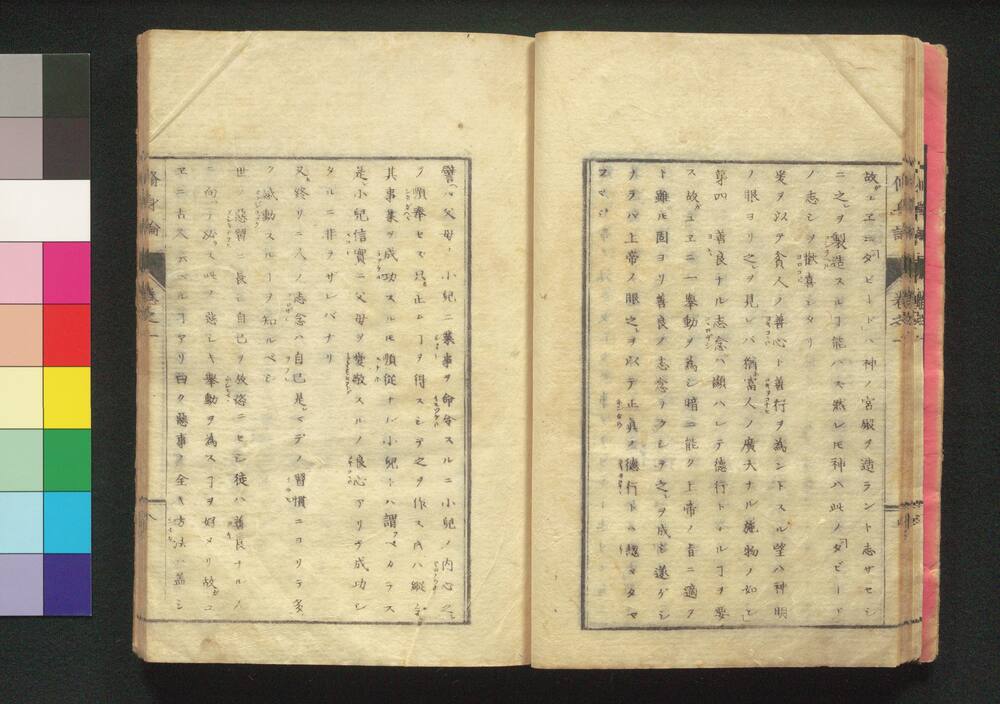 故ユヱニ「ダビード」ハ神ノ宮殿ヲ造ラント志ザセシ
ニ之ヲ製造スルヿ能ハズ然レモ神ハ此ノ「ダビード」
ノ志シヲ歓喜シタリ
愛ヲ以テ貧人ノ善心ト善行ヲ為ントスル望ハ神明
ノ眼ヨリ之ヲ見レバ猶富人ノ廣大ナル施物ノ如シ」
第四 善良ナル志念ハ顕ハレテ徳行トナルヿヲ要
ス故ユヱニ一擧動ヲ為シ暗ニ能ク上帝ノ旨ニ適フ
ト雖モ固ヨリ善良ノ志念ヲ之ヲ成シ遂ゲシ
ナラバ上帝ノ眼之ヲ以テ正真ノ徳行トハ認タマ
譬ヘバ父母ノ小兒ニ業事ヲ命令スルニ小兒ノ内心之
ヲ順奉セズ只止ムヿヲ得スシテ之ヲ作ス或ハ縦令
其事業ヲ成功スルモ順従ナル小兒トハ謂フベカラス
是小兒信實ニ父母ヲ愛敬スルノ良心アリテ成功シ
タルニ非ラザレバナリ
又終リニ人ノ志念ハ自己是マデノ習慣ニヨリテ多
ク感動スルヿヲ知ルベシ
世ノ惡習ニ長シ自己ヲ放恣ニセシ徒ハ善良ナルノ
ニ向テ必ス此ノ惡シキ擧動ヲ為スヿヲ好メリ故ユ
ヱニ古人云ヘルヿアリ曰ク惡事ノ全キ方法ハ蓋シ
脩身論
巻之一
八